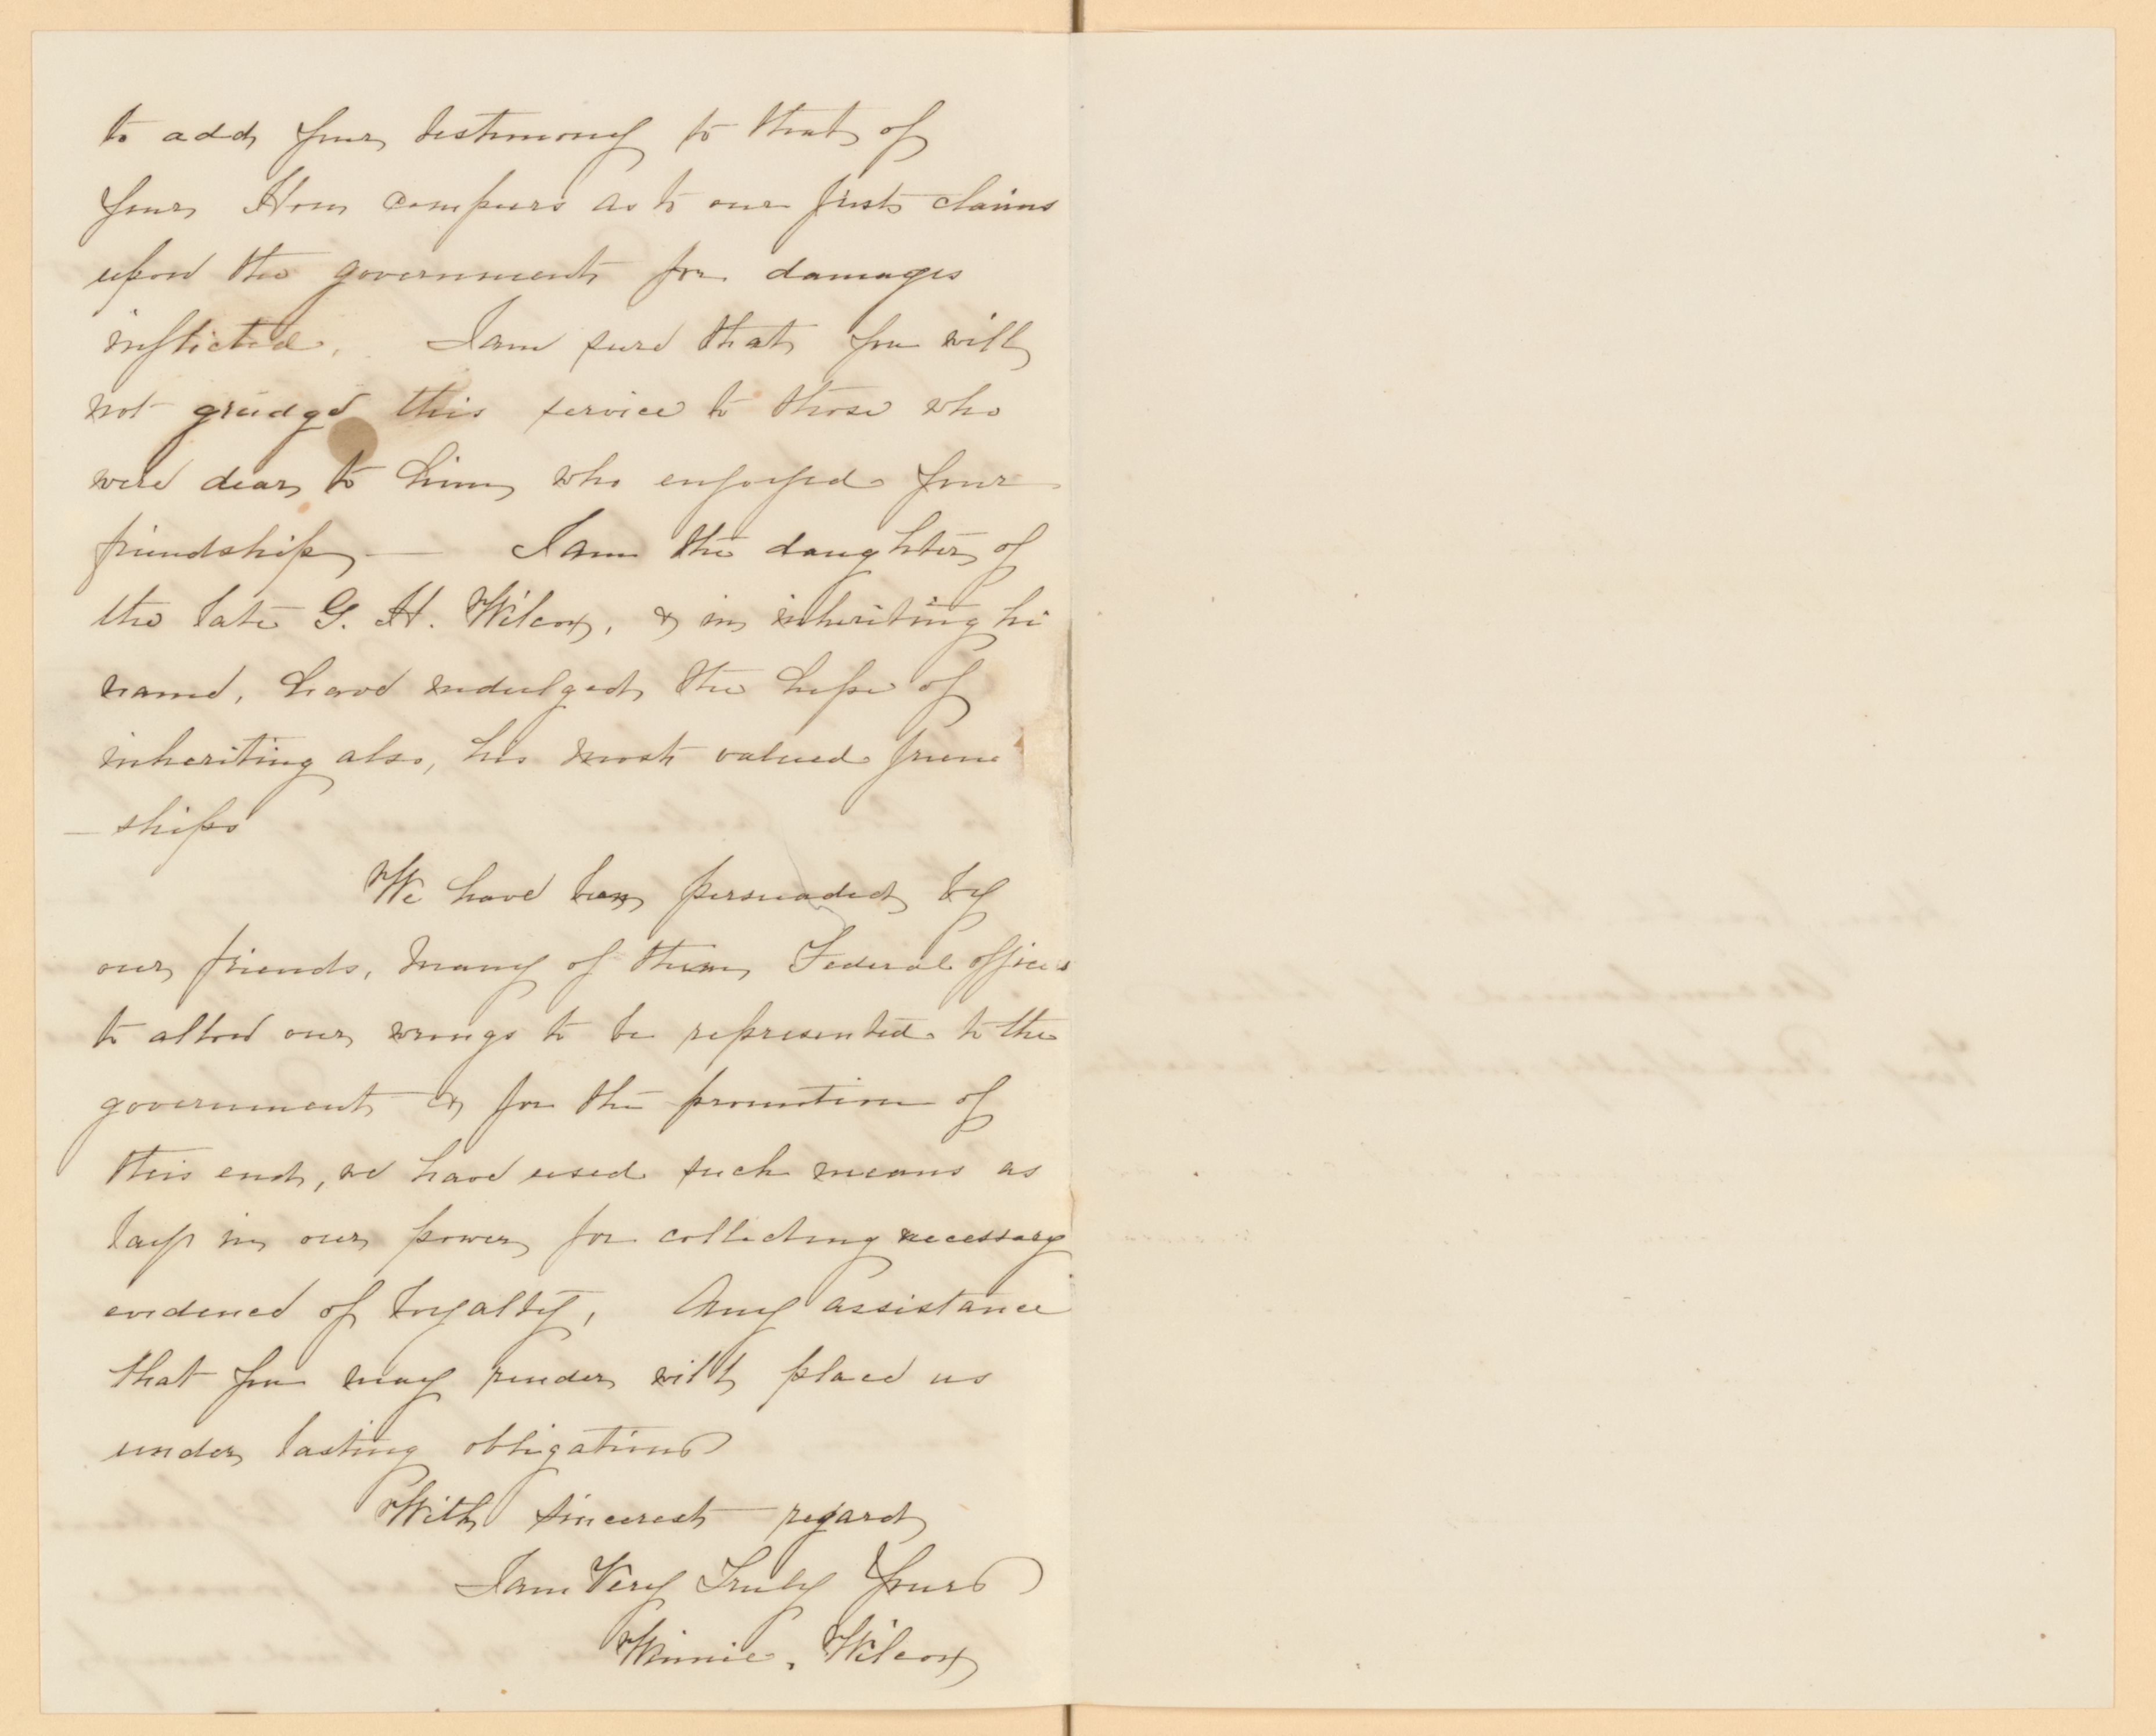 to add your testimony to that of
your Hon compeers as to our just claims
upon the government for damages
inflicted. I am sure that you will
not grudge this service to those who
were dear to him, who enjoyed your
friendship — I am the daughter of
the late G. H. Wilcox, & in inheriting hi
name, have indulged the hope of
inheriting also, his most valued frien
— ships
We have been persuaded by
our friends, many of them Federal officers
to allow our wrongs to be represented to the
government & for the promotion of
this end, we have used such means as
lay in our power for collecting necessary
evidence of loyalty, Any assistance
that you may render will place us
under lasting obligations
With sincerest regard
I am Very Truly Yours
Winnie. Wilcox